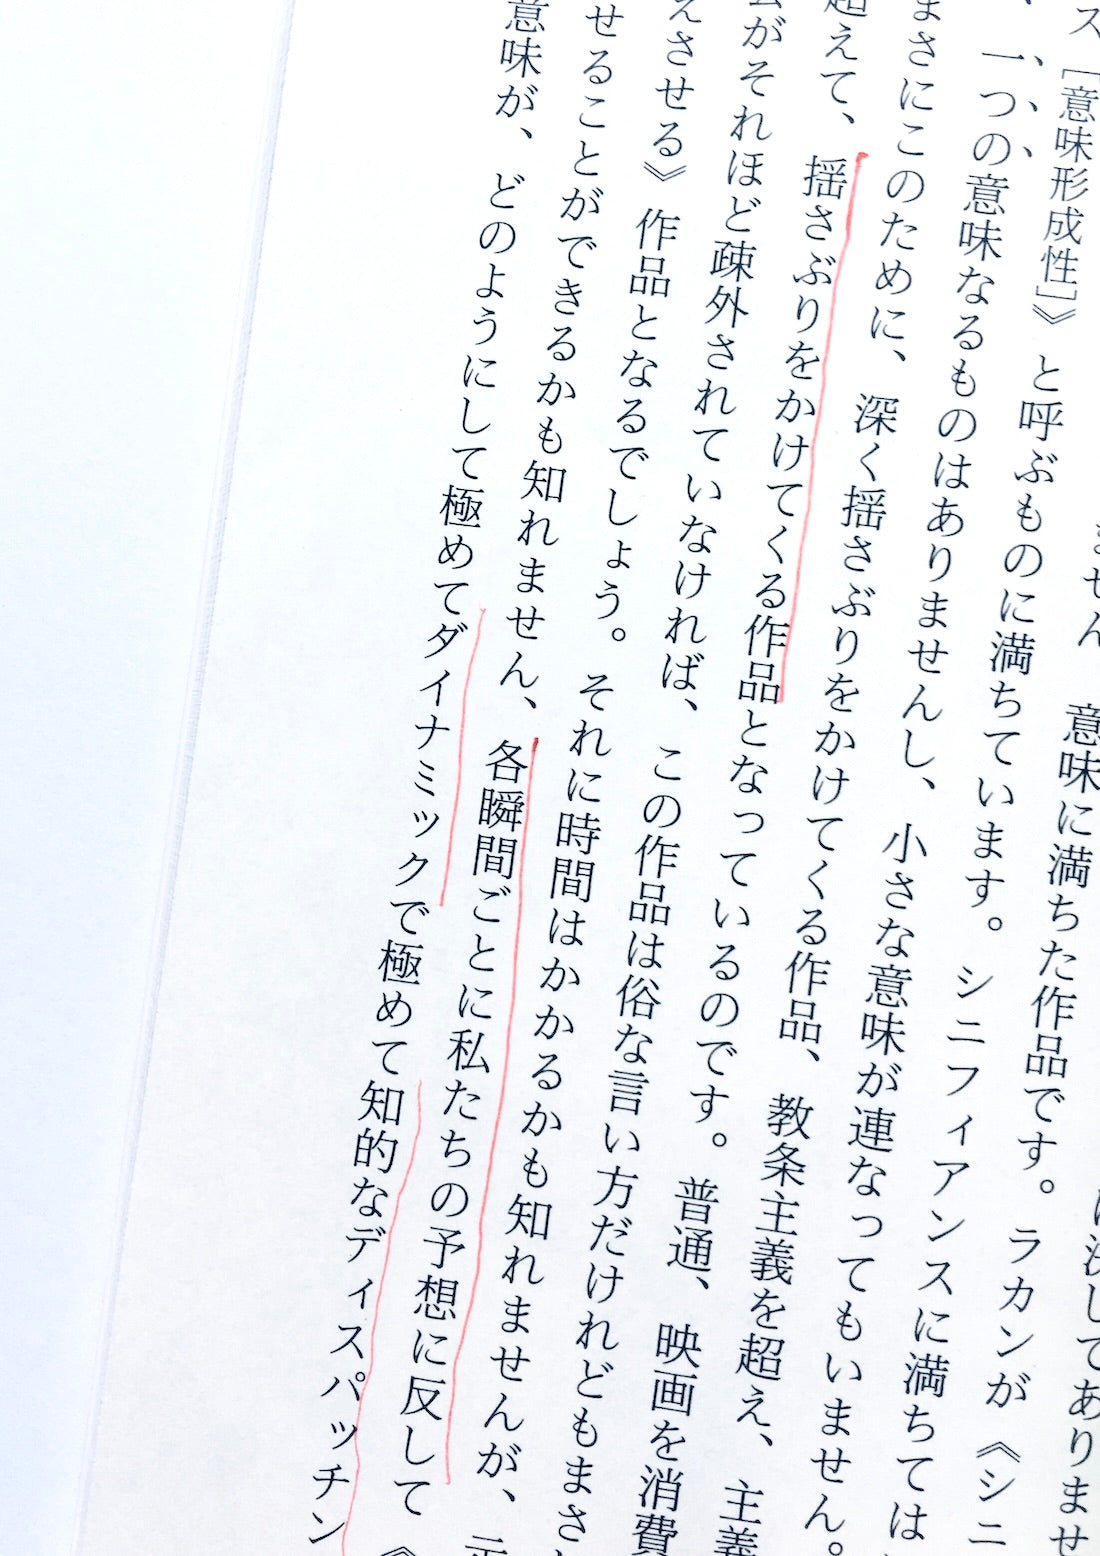 は決してありませ
ません 意味に満ちた作品です。ラカンが《シニ
ス［意味形成性］》と呼ぶものに満ちています。シニフィアンスに満ちては
、一つの意味なるものはありませんし、小さな意味が連なってもいません。
まさにこのために、深く揺さぶりをかけてくる作品、教条主義を超え、主義
超えて、揺さぶりをかけてくる作品となっているのです。普通、映画を消費
がそれほど疎外されていなければ、この作品は俗な言い方だけれどもまさ
えさせる》作品となるでしょう。それに時間はかかるかも知れませんが、
せることができるかも知れません、各瞬間ごとに私たちの予想に反して《
意味が、どのようにして極めてダイナミックで極めて知的なディスパッチン